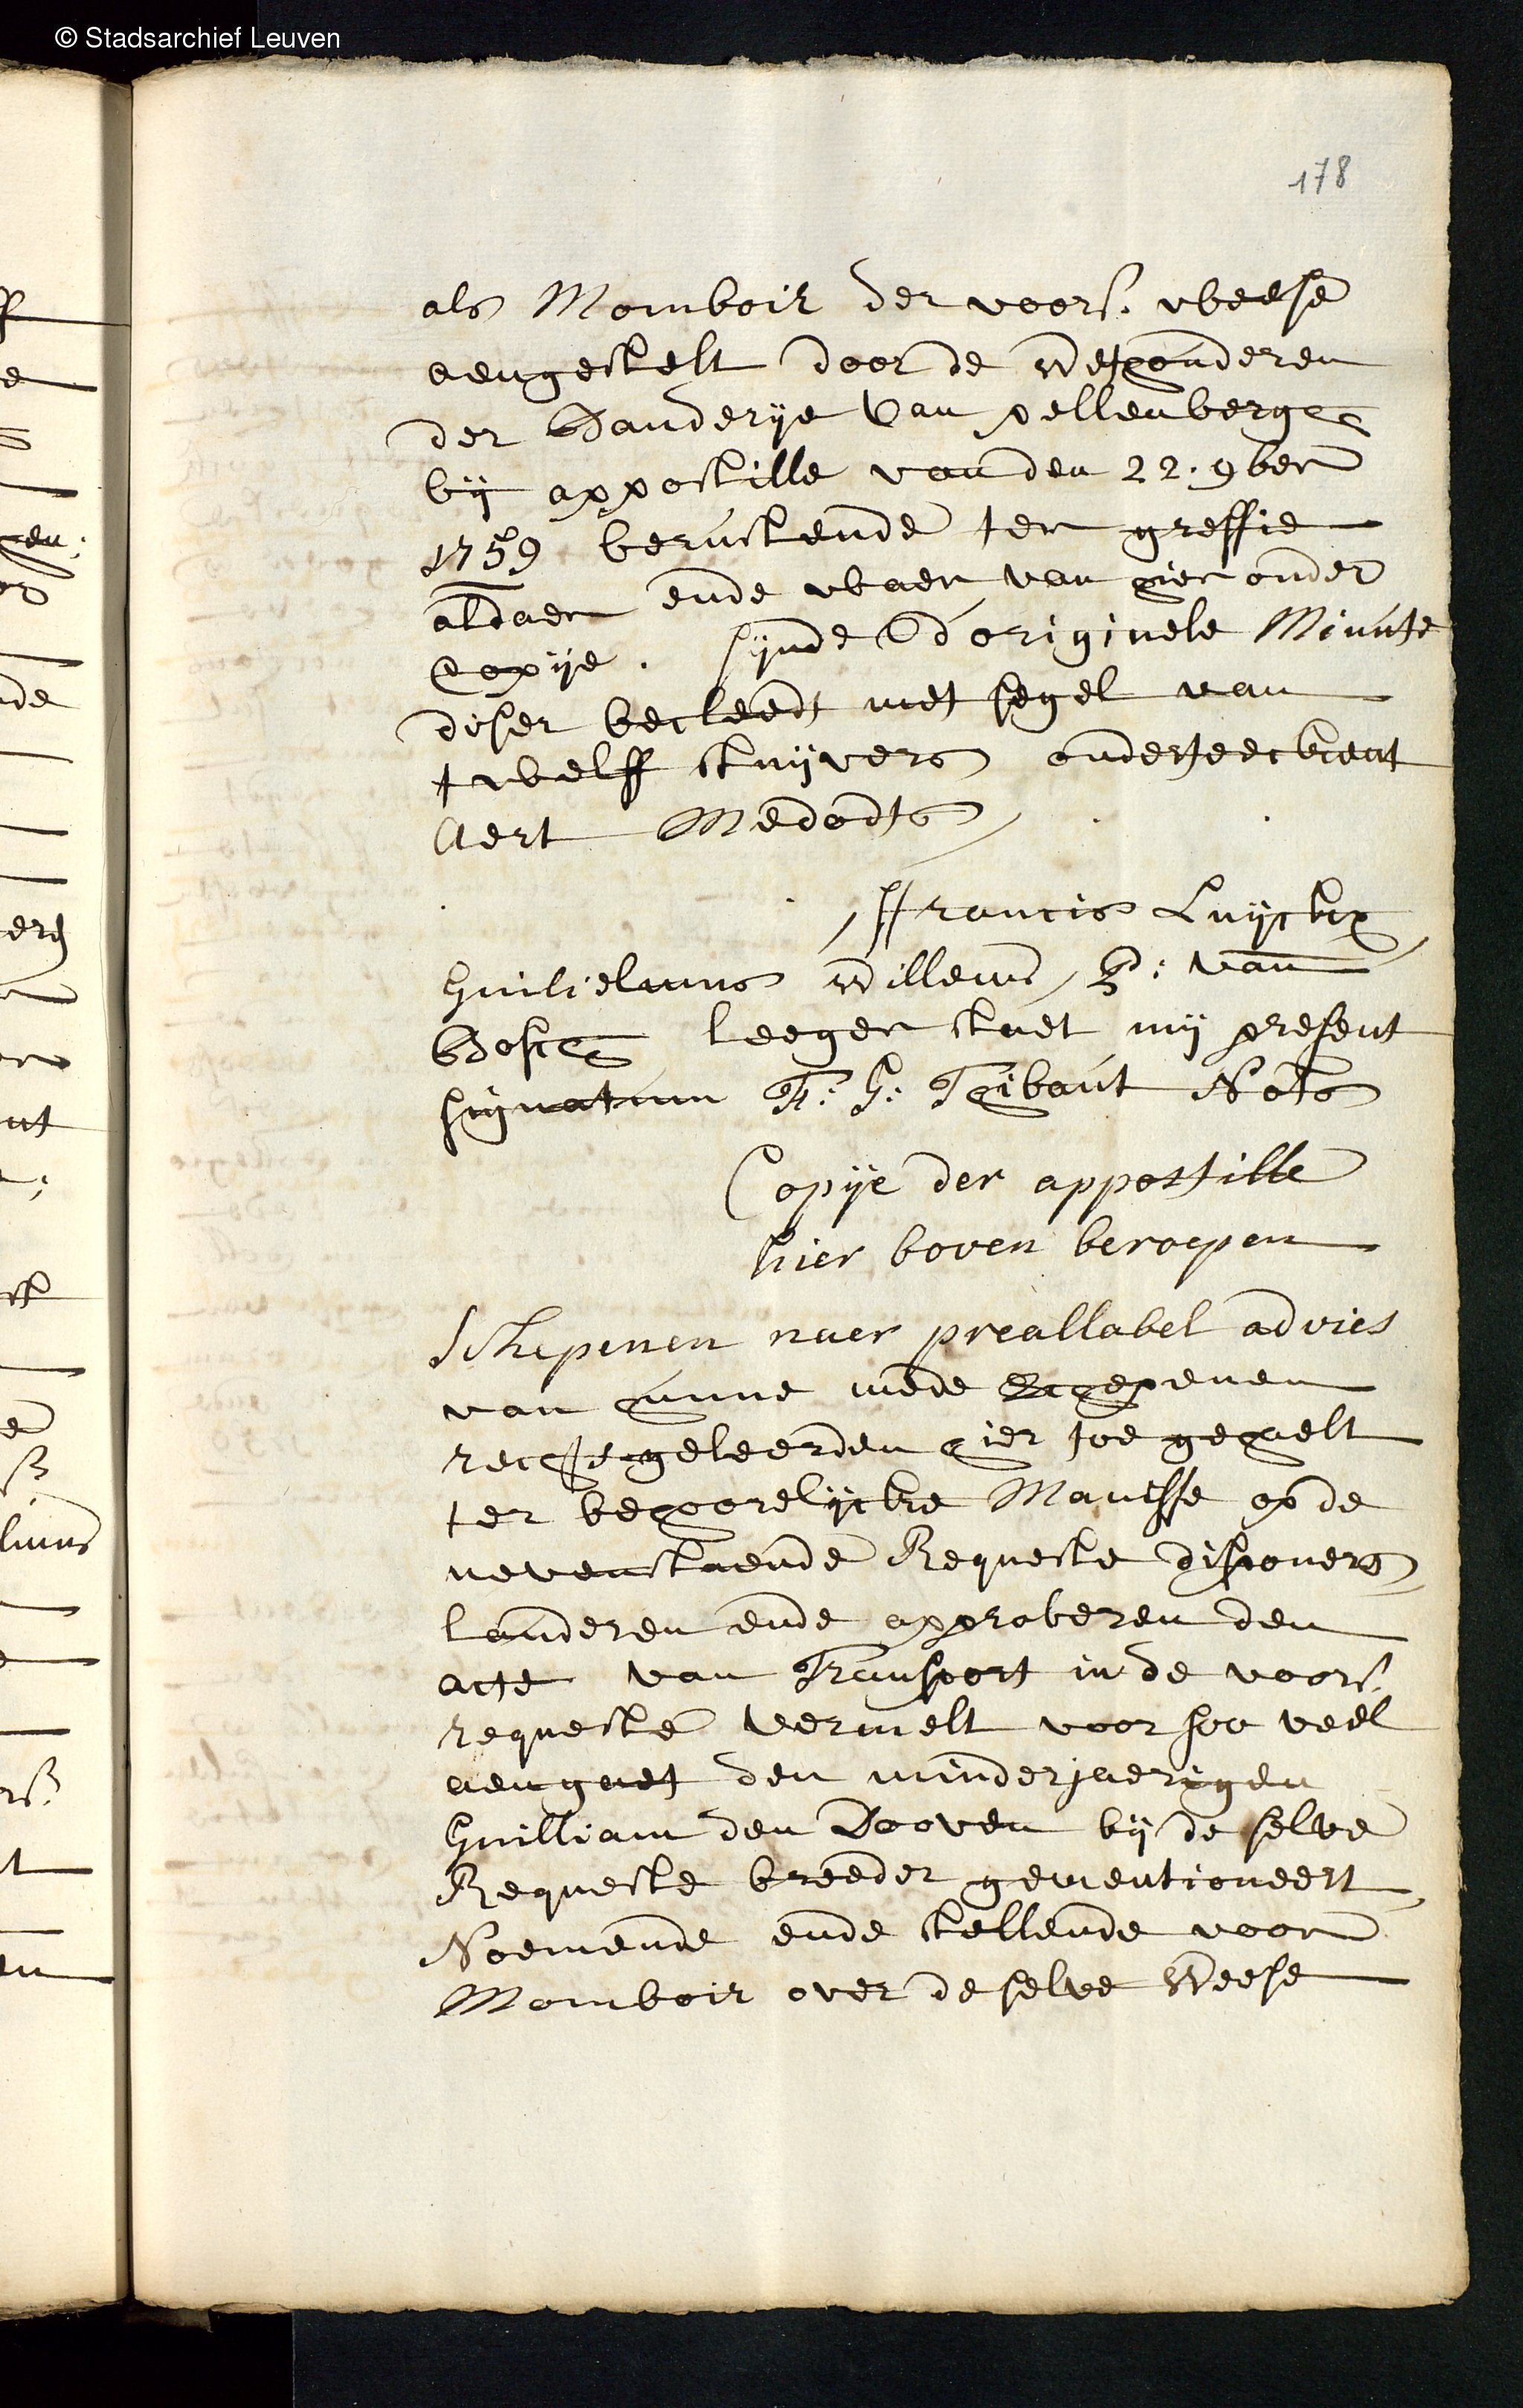 © Stadsarchief Leuven
178
als Momboir der voors. weese
aengestelt door de wethouderen
der Banderije van pellenbergh
bij appostille van den 22. 9ber
1759 berustende ter greffie
aldaer ende waer van hier onder
Copije. sijnde d'originele Minute
deser becleedt met segel van
twelff stuijvers onderteeckent
Aert Medodts
Francis Luijckx
Guilielmus Willems, P: van
Bosch leeger staet mij present
signatum F: G: Thibaut Nots
Copije der appostille
hier boven beroepen
Schepenen naer preallabel advies
van hunne mede Schepenen
rechtsgeleerden hier toe gehaelt
ter behoorelijcke Manisse op de
nevenstaende Requeste disponerende
lauderen ende approberen den
acte van Transport in de voors.
requeste vermelt voor soo veel
aengaet den minderjaerigen
Guilliam den Dooven bij de selve
Requeste breeder gementioneert
Noemende ende stellende voor
Momboir over de selve Weese